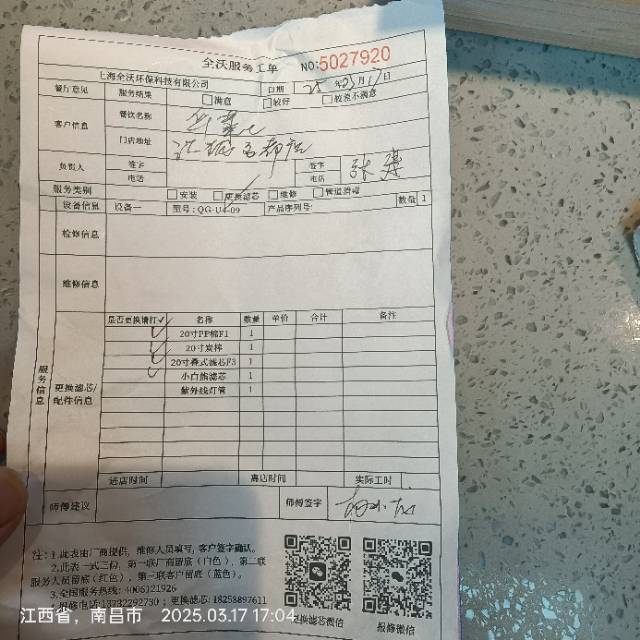 全沃服务工单 NO:5027920
上海全沃环保科技有限公司 日期 25年03月17日
餐厅意见 服务结果 满意 较好 较差不满意
客户信息 餐饮名称
门店地址
负责人 签字 签字 张
电话 电话
服务类别 安装 更换滤芯 维修 管道清理
设备信息 设备一 型号:QG-U4-09 产品序列号: 数量 1
检修信息
维修信息
服务信息
更换滤芯/配件信息
是否更换请打✓ 名称 数量 单价 合计 备注
✓ 20寸PP棉F1 1
✓ 20寸炭棒 1
✓ 20寸叠式滤芯F3 1
✓ 小白熊滤芯 1
紫外线灯管 1
进店时间 离店时间 实际工时
师傅建议 师傅签字
注:1.此表由厂商提供,维修人员填写,客户签字确认。
2.此表一式三份,第一联厂商留底(白色),第二联
服务人员留底(红色),第三联客户留底(蓝色)。
3.全国服务热线:4006121926
报修电话:13732292730;更换滤芯:18258897611
更换滤芯微信 报修微信
江西省,南昌市 2025.03.17 17:04